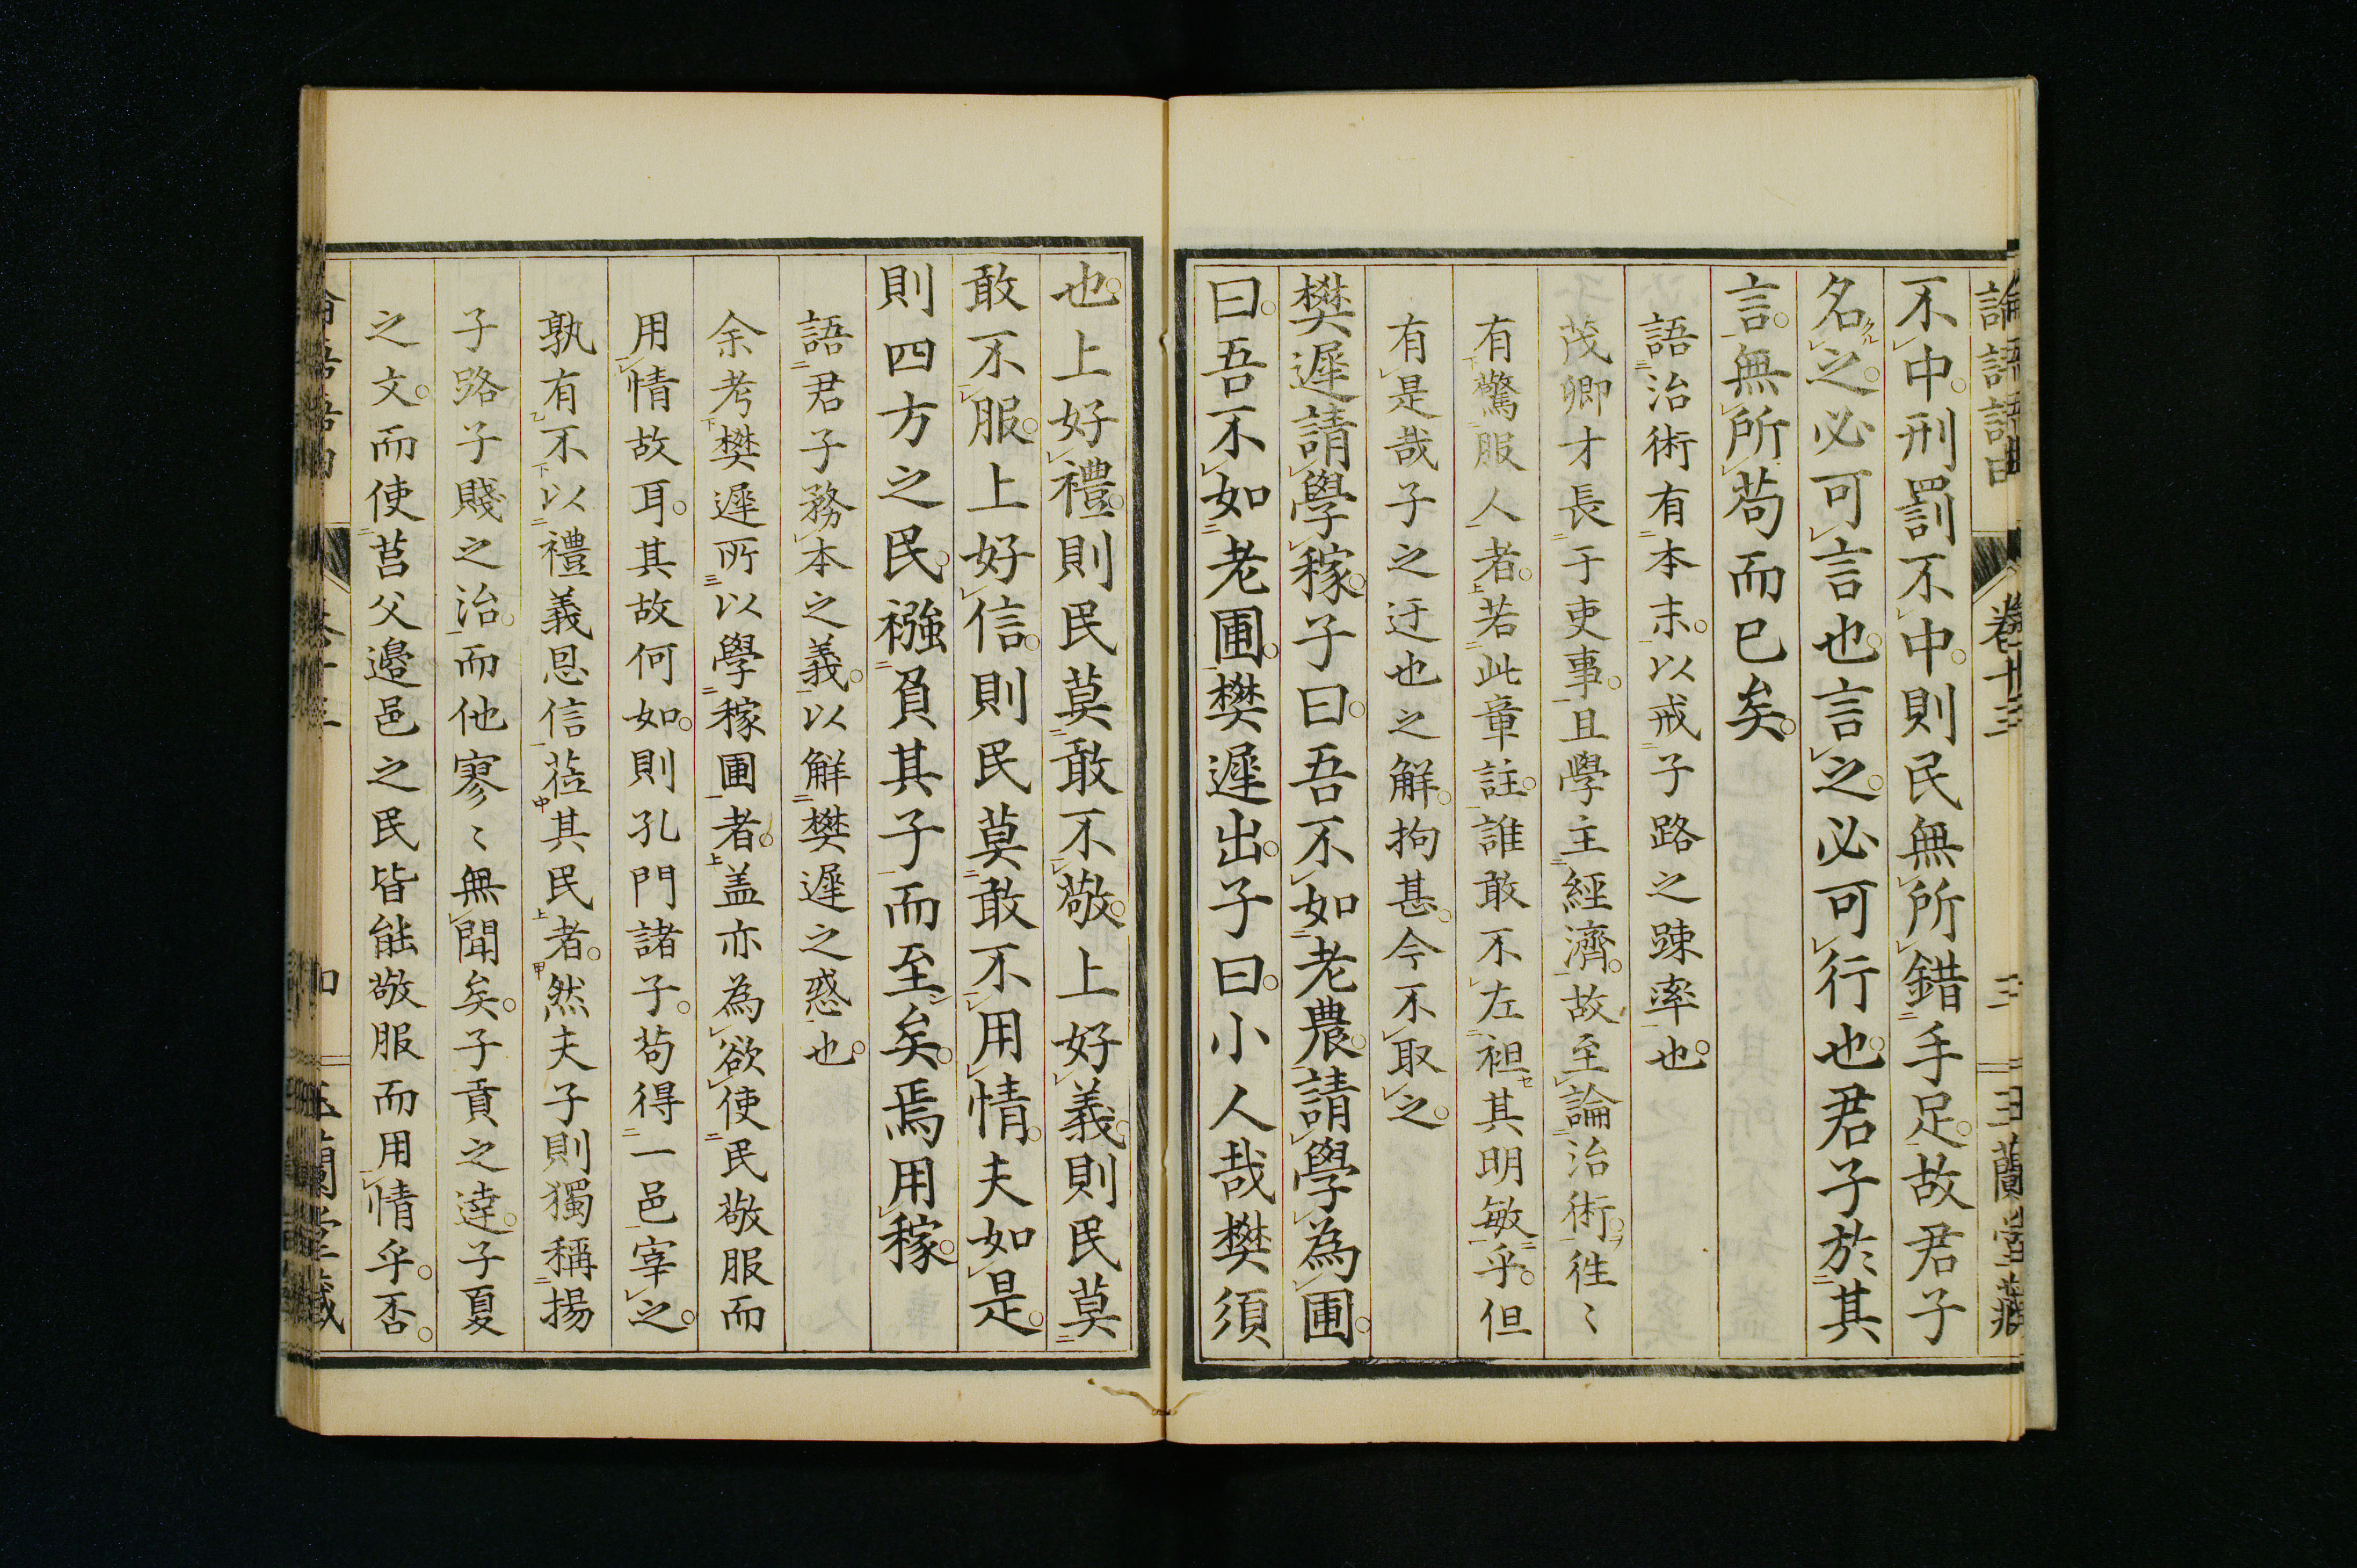 論語語由 卷十三 三 玉蘭堂藏
不中刑罰不中則民無所錯手足故君子
名之必可言也言之必可行也君子於其
言無所苟而已矣
語治術有本末以戒子路之踈率也
茂卿才長于吏事且學主經濟故至論治術往〻
有驚服人者若此章註誰敢不左袒其明敏乎但
有是哉子之迂也之解拘甚今不取之
樊遲請學稼子曰吾不如老農請學為圃
曰吾不如老圃樊遲出子曰小人哉樊須
也上好禮則民莫敢不敬上好義則民莫
敢不服上好信則民莫敢不用情夫如是
則四方之民襁負其子而至矣焉用稼
語君子務本之義以解樊遲之惑也
余考樊遲所以學稼圃者盖亦為欲使民敬服而
用情故耳其故何如則孔門諸子苟得一邑宰之
孰有不以禮義恩信莅其民者然夫子則獨稱揚
子路子賤之治而他寥〻無聞矣子貢之達子夏
之文而使莒父邉邑之民皆能敬服而用情乎否